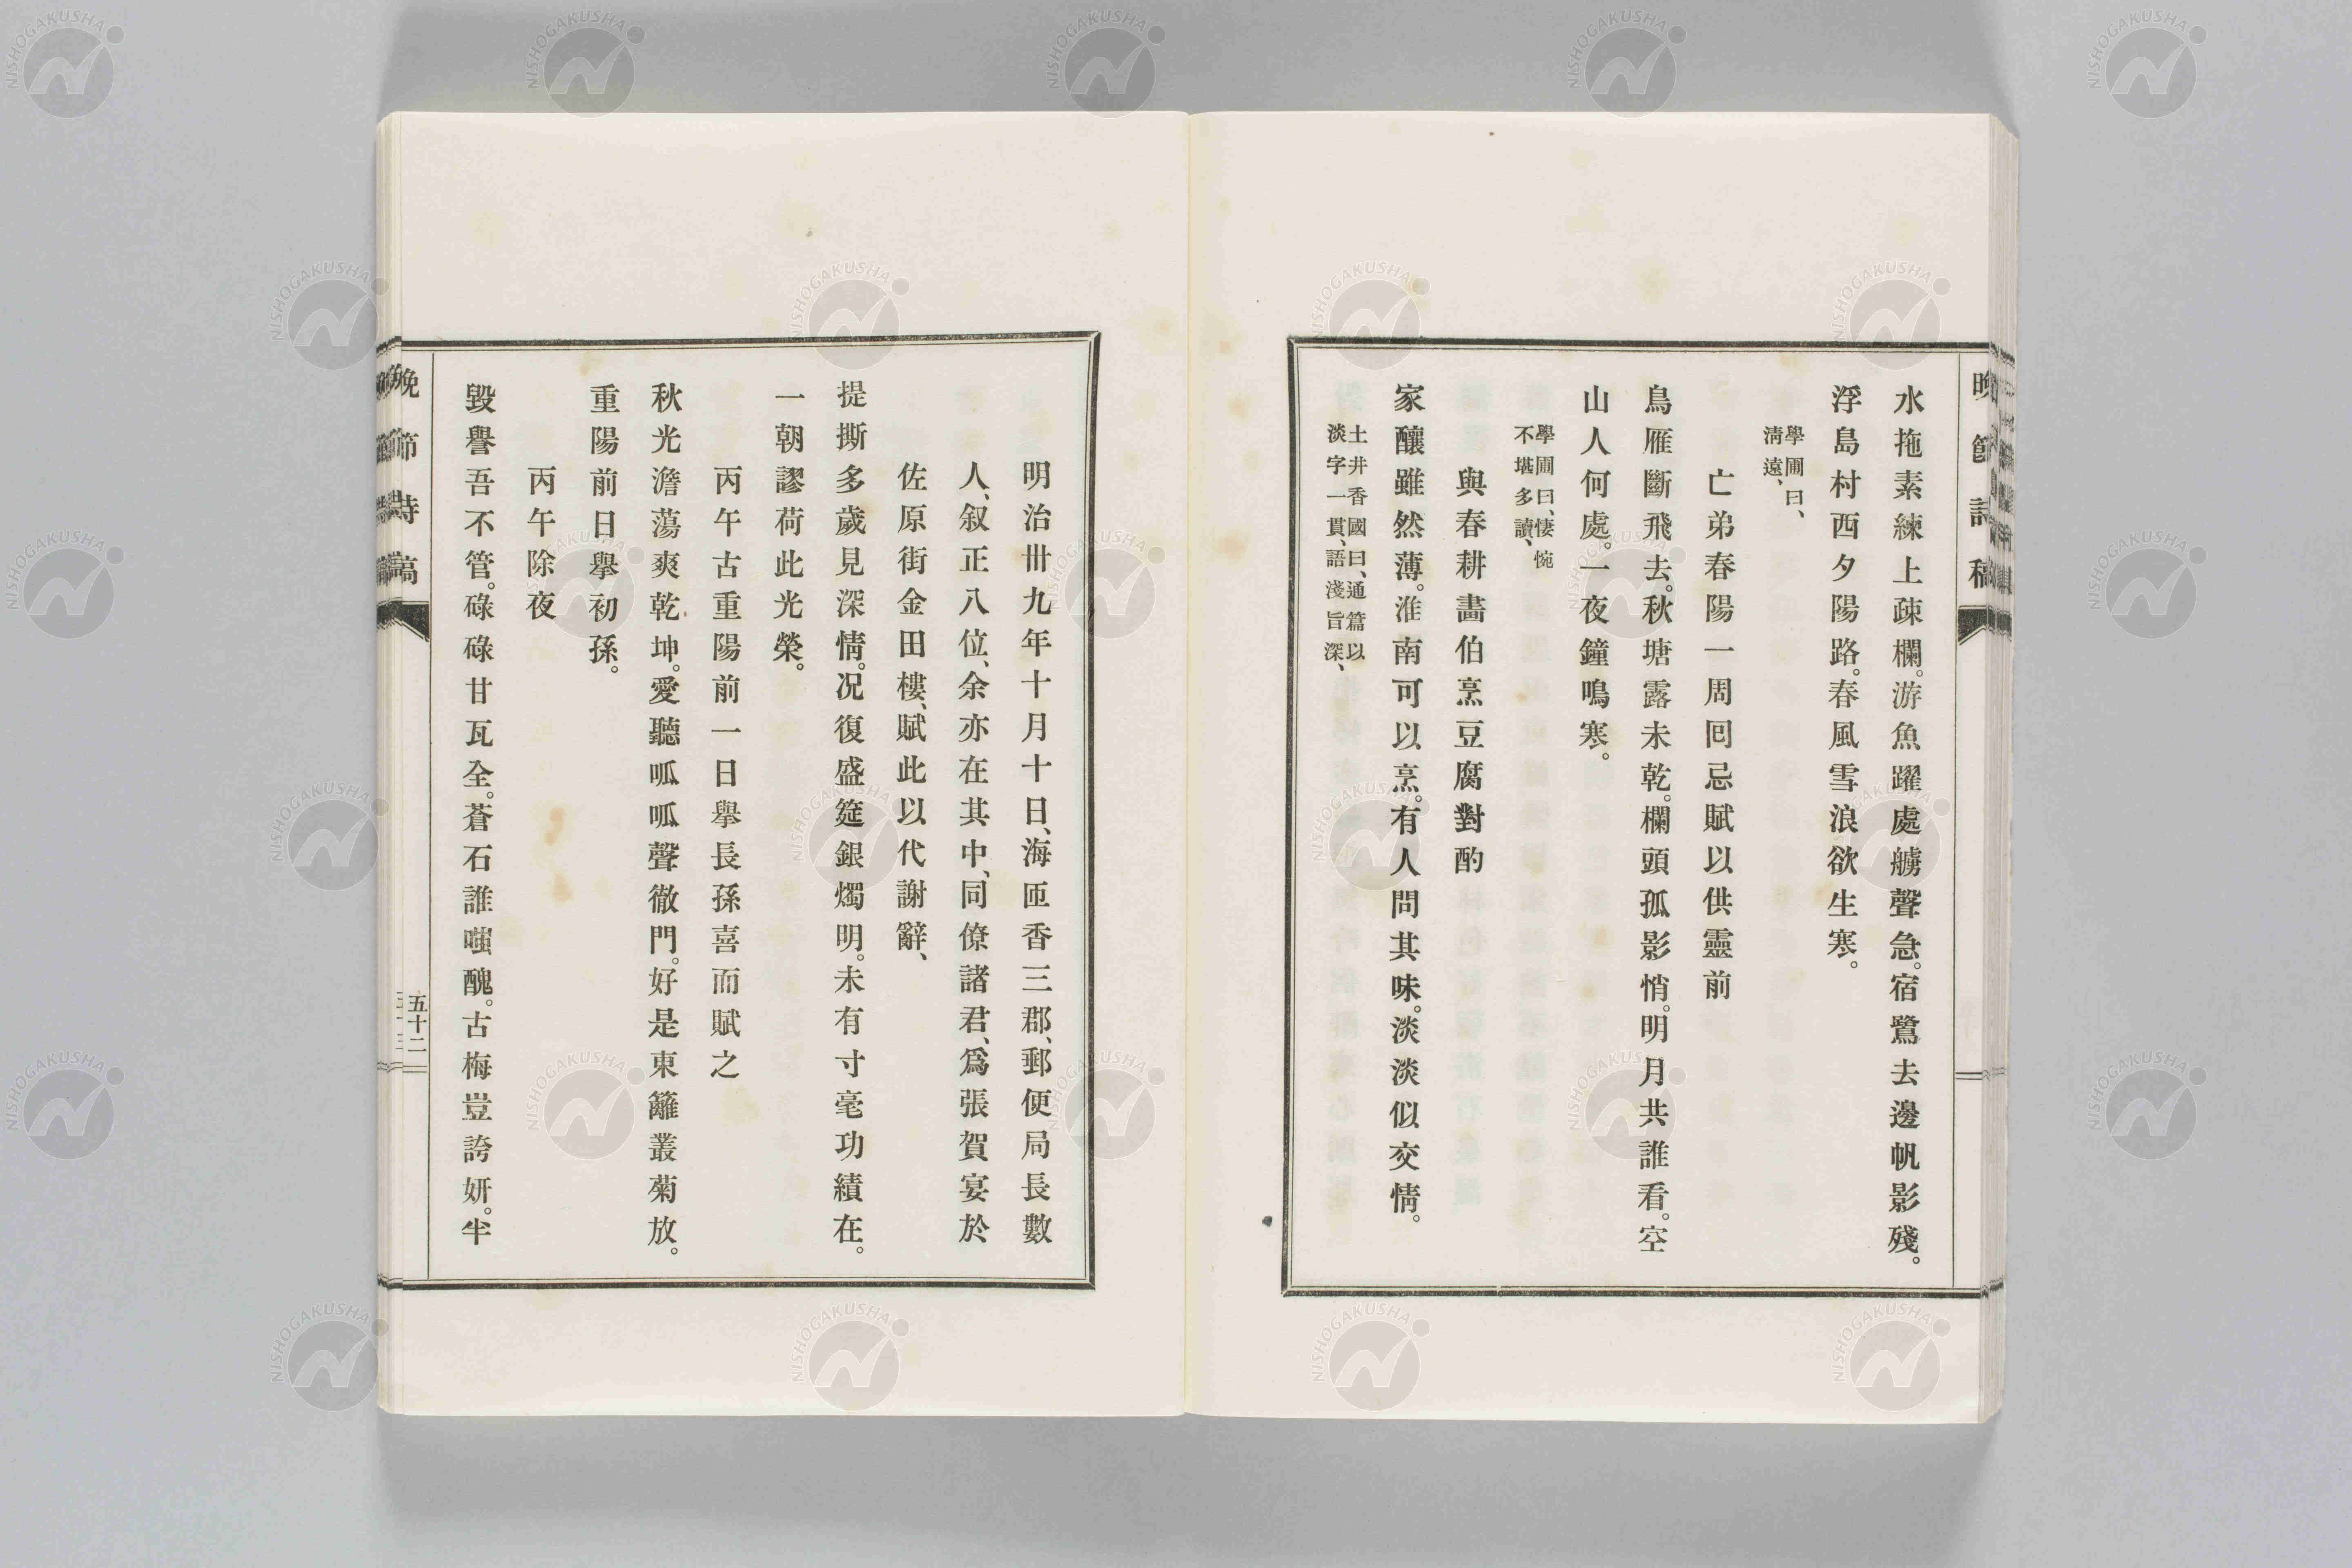 晩節詩稿
水拖素練上疎欄。游魚躍處艣聲急。宿鷺去邊帆影殘。
浮島村西夕陽路。春風雪浪欲生寒。
學圃曰、
淸遠、
亡弟春陽一周囘忌賦以供靈前
鳥雁斷飛去。秋塘露未乾。欄頭孤影悄。明月共誰看。空
山人何處。一夜鐘鳴寒。
學圃曰、悽惋
不堪多讀、
與春耕畵伯烹豆腐對酌
家釀雖然薄。淮南可以烹。有人問其味。淡淡似交情。
土井香國曰、通篇以
淡字一貫、語淺旨深、
明治卅九年十月十日、海匝香三郡、郵便局長數
人、叙正八位、余亦在其中、同僚諸君、爲張賀宴於
佐原街金田樓、賦此以代謝辭、
提撕多歲見深情。况復盛筵銀燭明。未有寸毫功績在。
一朝謬荷此光榮。
丙午古重陽前一日擧長孫喜而賦之
秋光澹蕩爽乾坤。愛聽呱呱聲徹門。好是東籬叢菊放。
重陽前日擧初孫。
丙午除夜
毀譽吾不管。碌碌甘瓦全。蒼石誰嗤醜。古梅豈誇妍。半
晩節詩稿
五十二
NISHOGAKUSHA